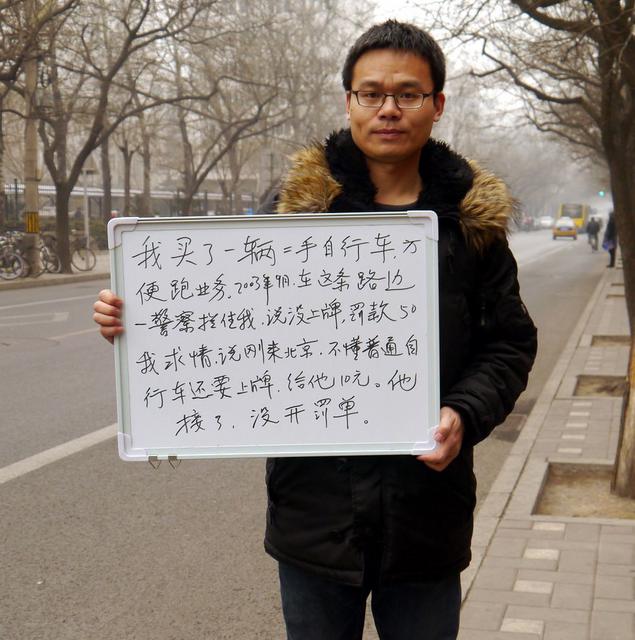 我买了一辆二手自行车,方
便跑业务,2003年9月,在这条路边
一警察拦住我,说没上牌,罚款50
我求情,说刚来北京,不懂普通自
行车还要上牌,给他10元。他
接了,没开罚单。